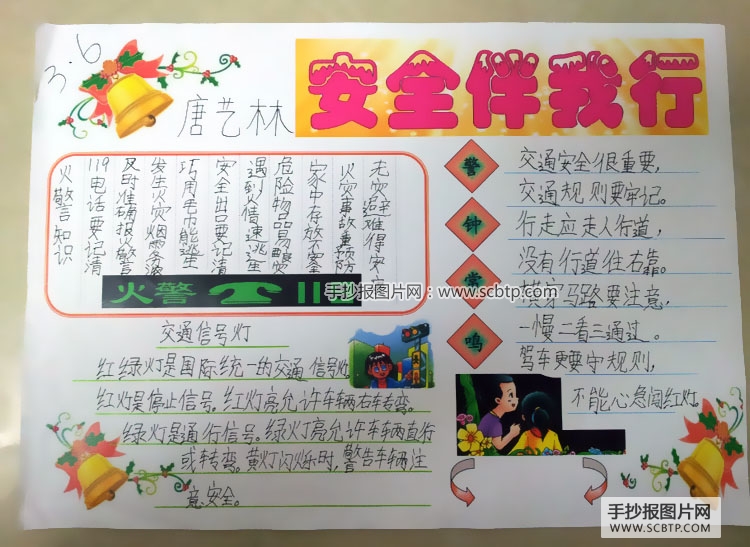 3.6
唐艺林
安全伴我行
火警知识
119电话要记清
及时准确报火警
发生火灾烟雾浓
巧用毛巾能逃生
安全出口要记清
遇到火情速逃生
危险物品易酿灾
家中存放不安全
火灾事故重预防
无灾避难得安
火警 119
手抄报图片网:www.scbtp.com
警
钟
常
鸣
交通安全很重要,
交通规则要牢记。
行走应走人行道,
没有行道往右靠。
横穿马路要注意,
一慢二看三通过。
驾车更要守规则,
不能心急闯红灯
交通信号灯
红绿灯是国际统一的交通信号灯
红灯是停止信号。红灯亮允许车辆右车专弯。
绿灯是通行信号。绿灯亮允许车辆直行
或转弯。黄灯闪烁时,警告车辆注
意安全。
手抄报图片网
WWW.SCBTP.COM